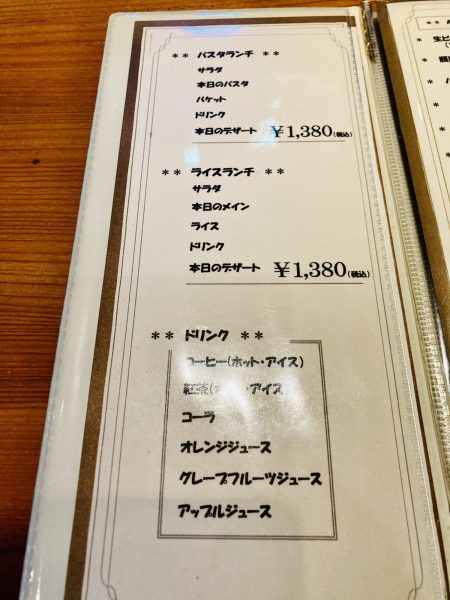 ** パスタランチ **
サラダ
本日のパスタ
バケット
ドリンク
本日のデザート ￥1,380(税込)
** ライスランチ **
サラダ
本日のメイン
ライス
ドリンク
本日のデザート ￥1,380(税込)
** ドリンク **
コーヒー(ホット・アイス)
紅茶(ホット・アイス)
コーラ
オレンジジュース
グレープフルーツジュース
アップルジュース
**
* 生ビ
*
*
*
*